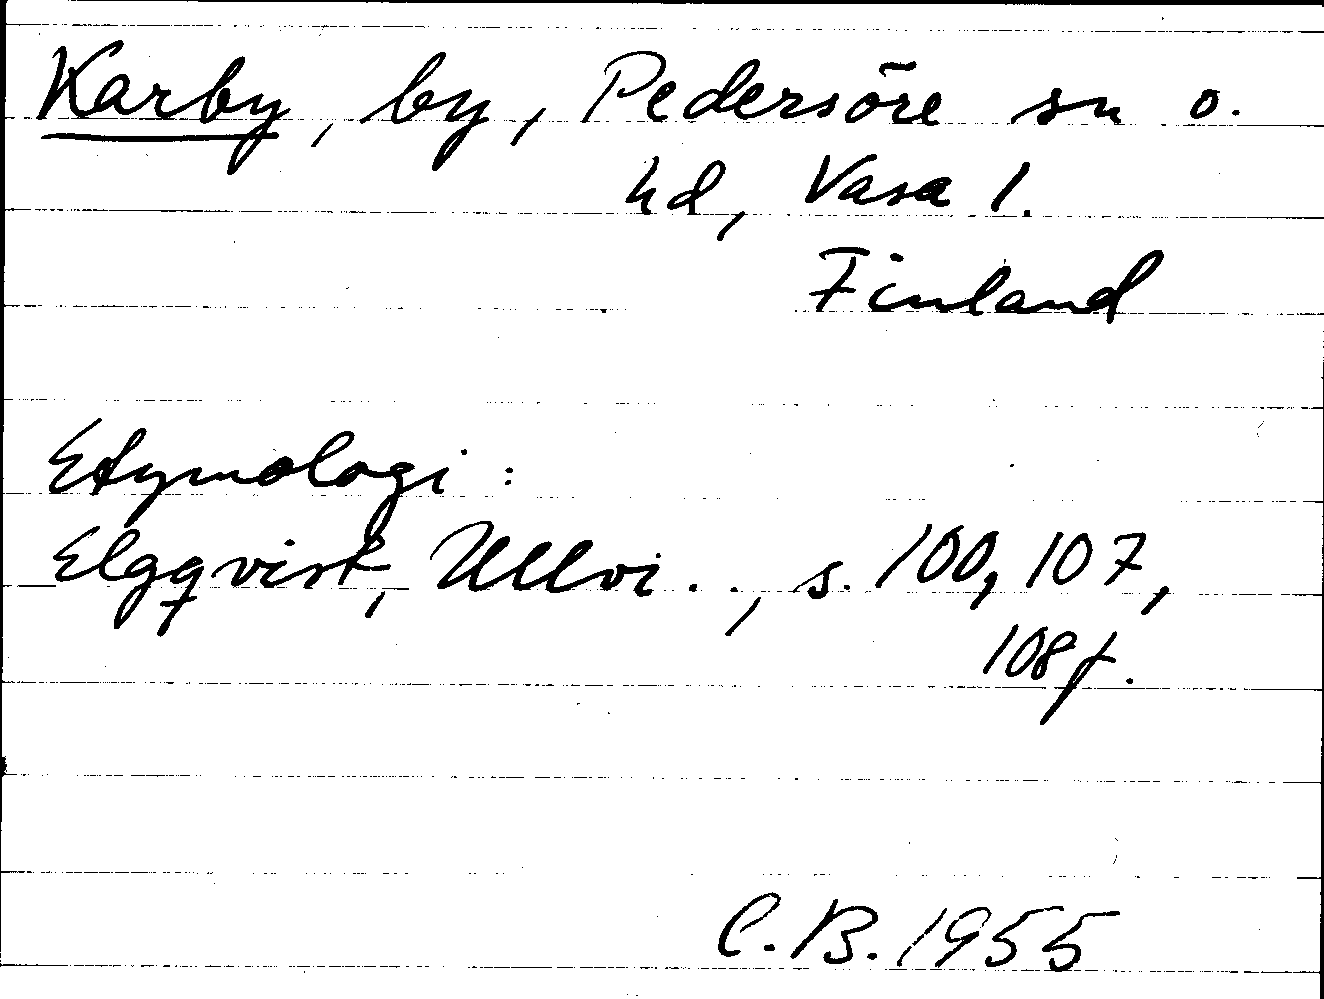 Karby, by, Pedersöre sn o.
hd, Vasa l.
Finland
Etymologi:
Elgqvist, Ullvi . . , s. 100, 107,
108 f.
C.B. 1955